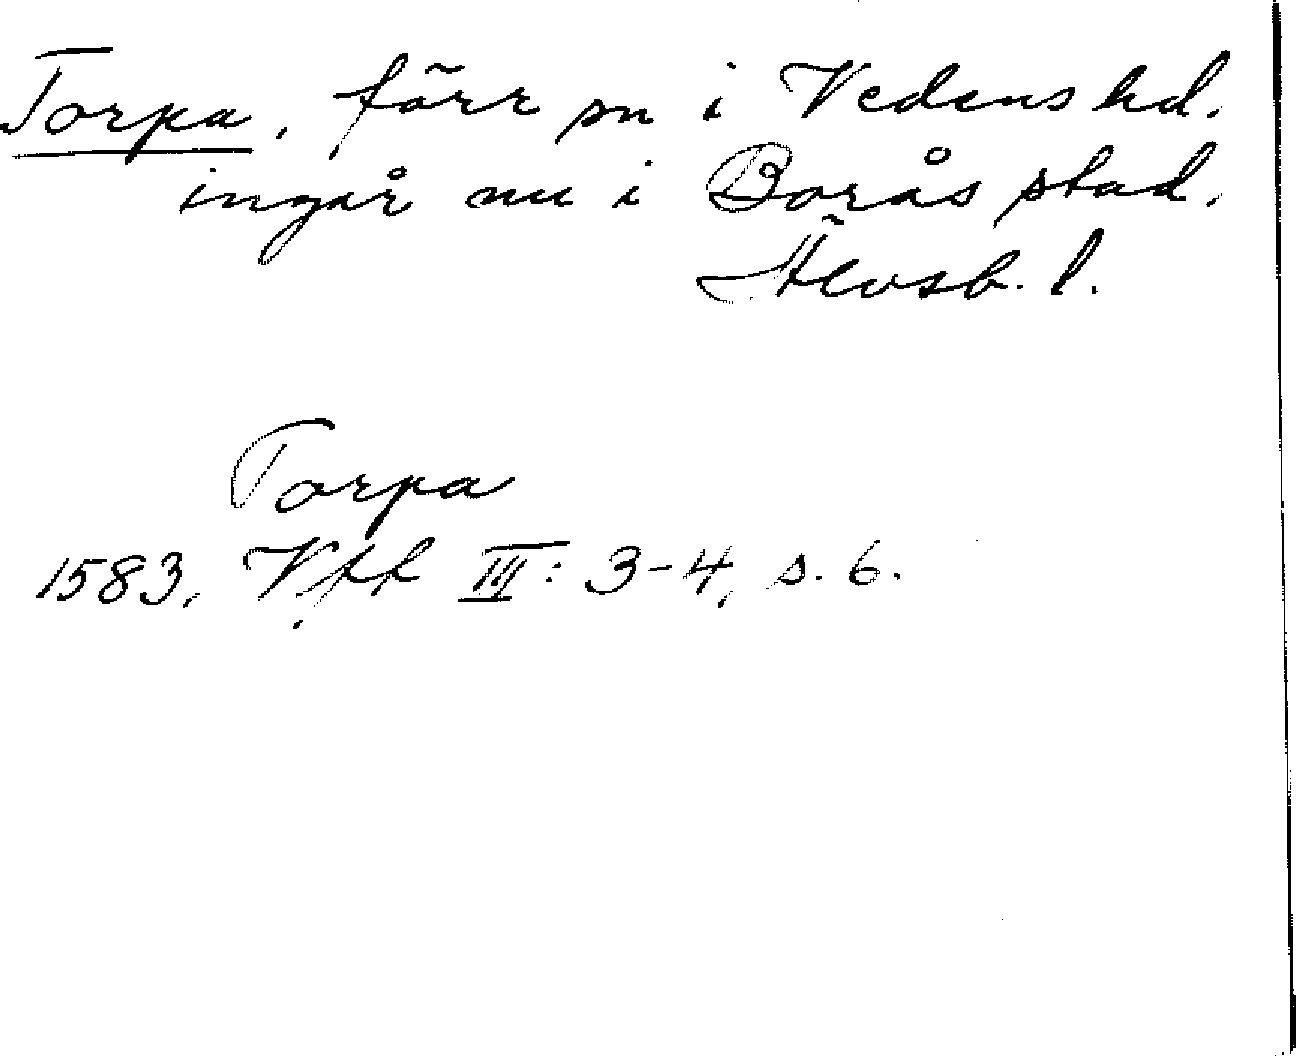 Torpa, förr sn i Vedens hd.
ingår nu i Borås stad.
Älvsb. l.
Torpa
1583, Vff III: 3-4, s. 6.